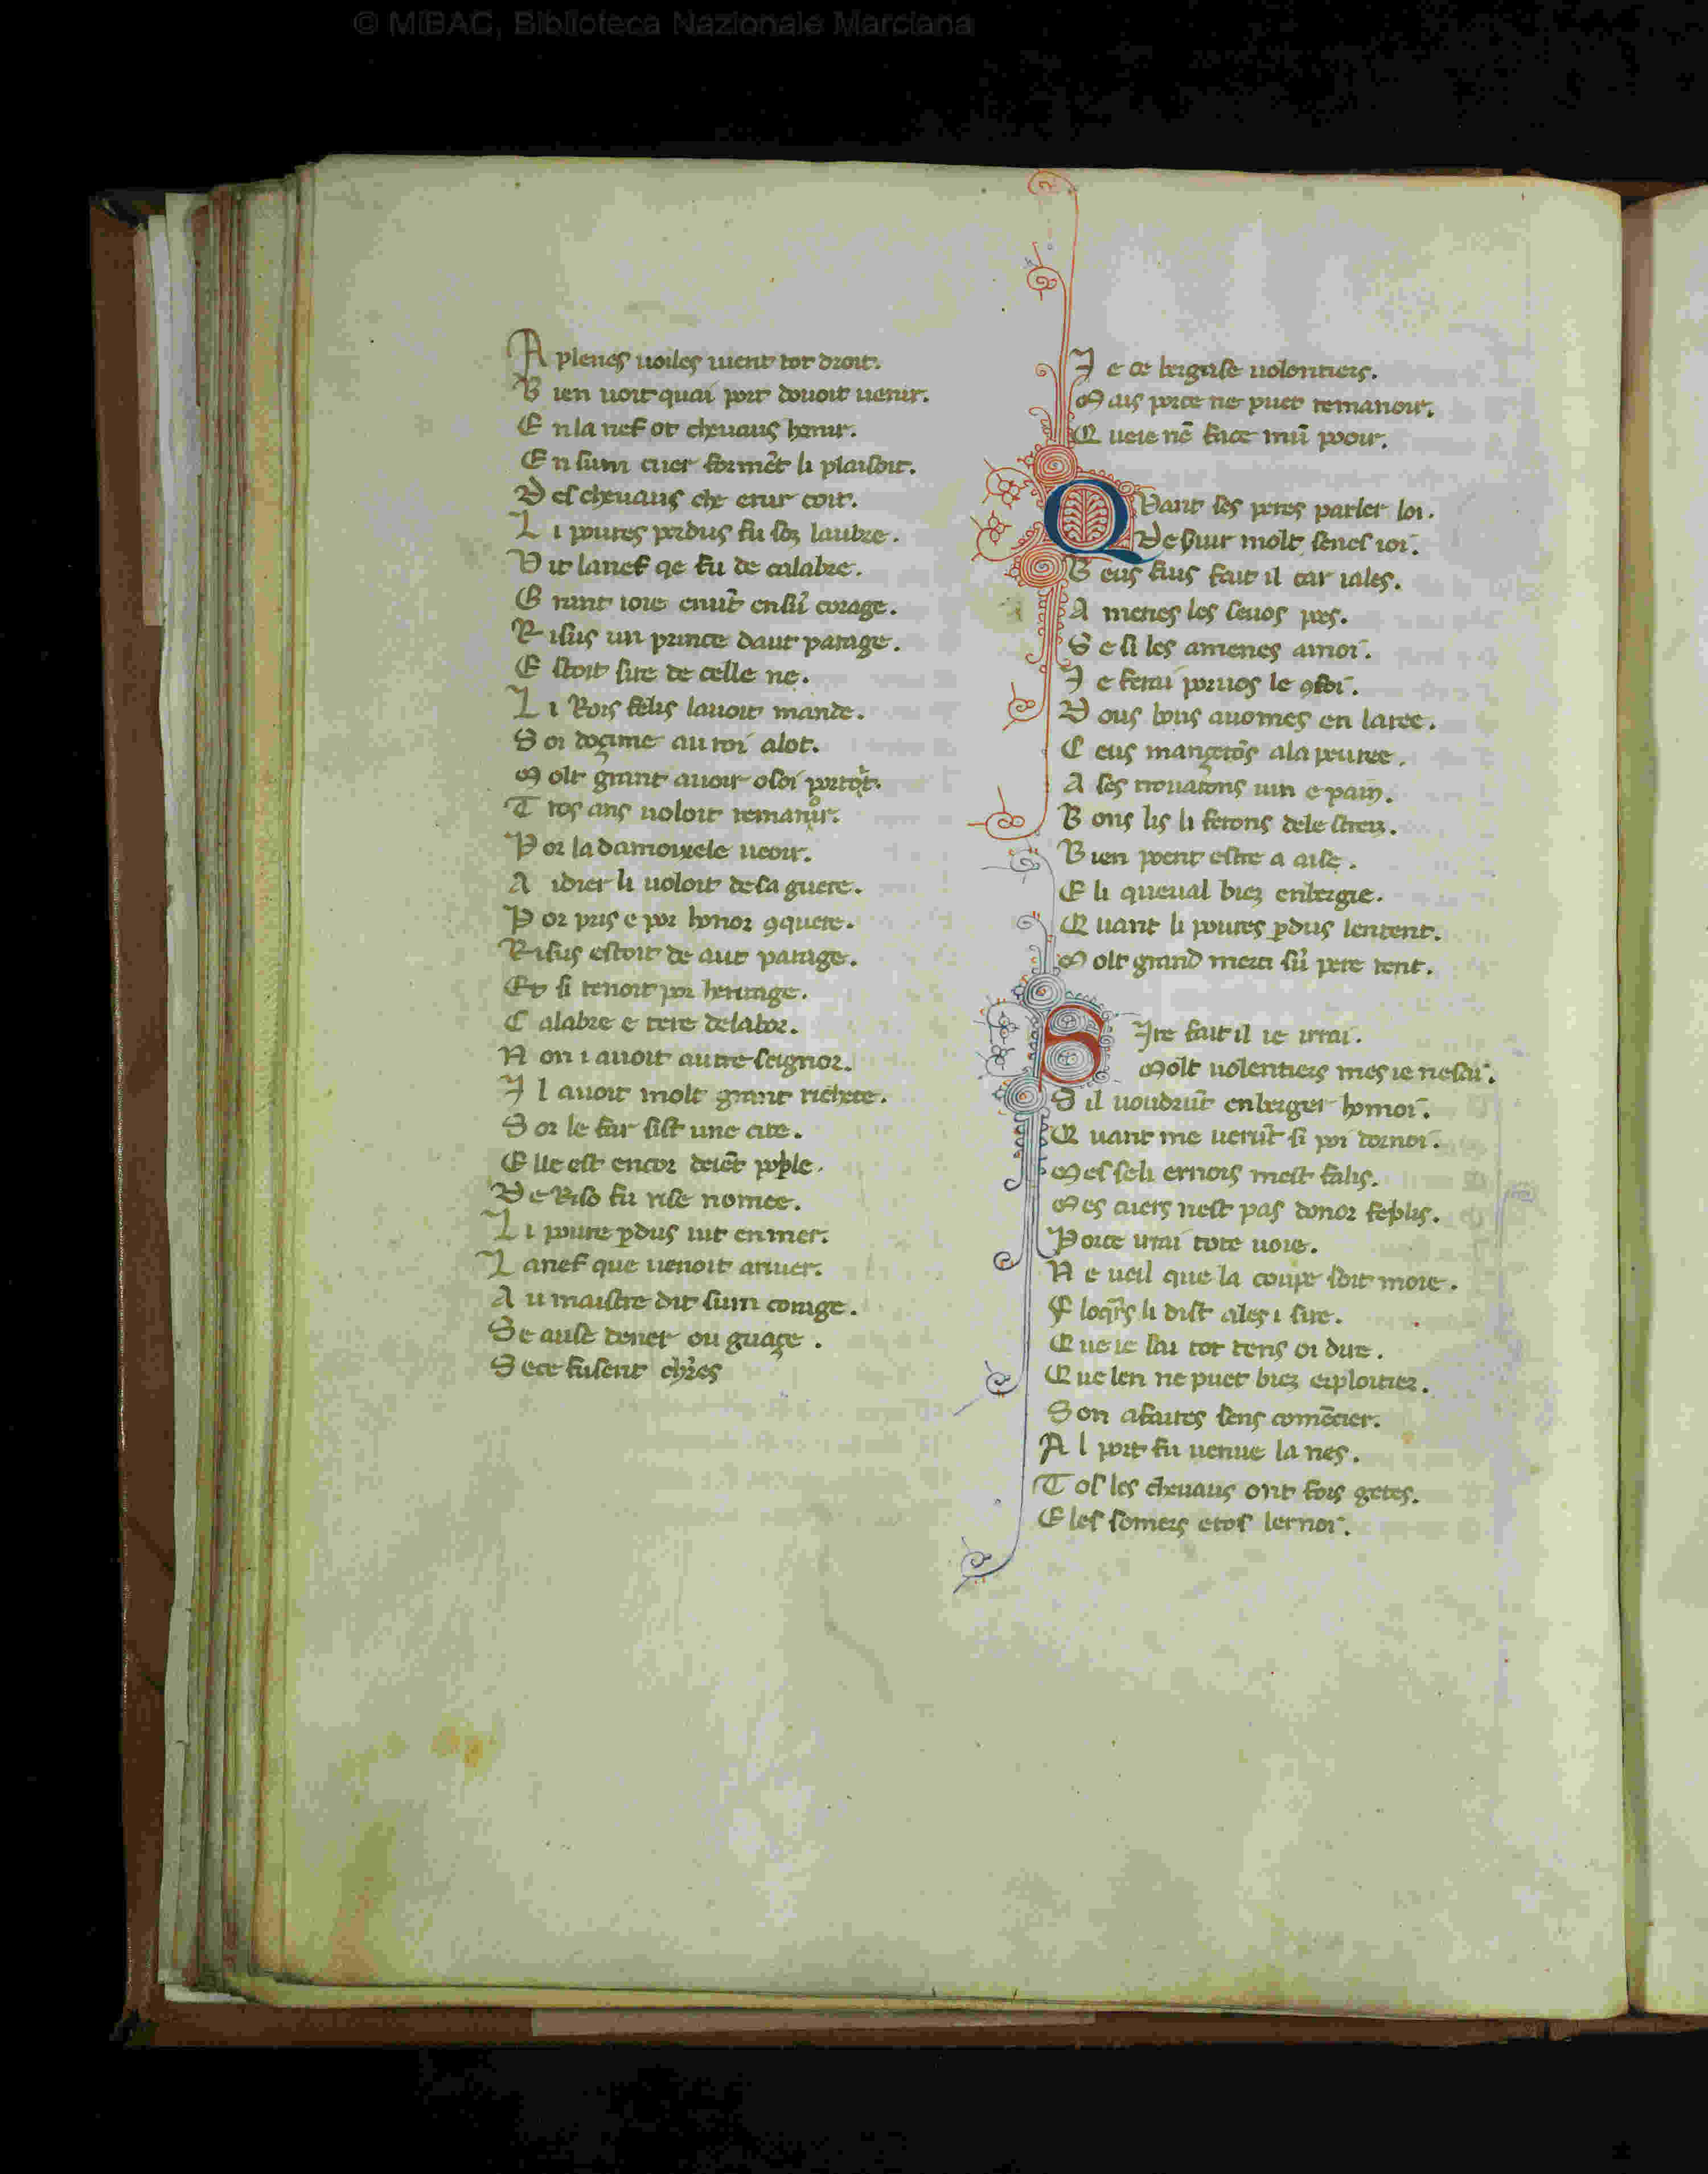 © MiBAC, Biblioteca Nazionale Marciana
A plenes uoiles uient tot droit.
B ien uoit quai port douoit uenir.
E n la nef ot cheuaus henir.
E n sum cuer formẽt li plaisoit.
D es cheuaus che enir coit.
L i poures perdus fu soz laubre.
V it lanef qe fu de calabre.
G rant ioie enuͭ ensũ corage.
R isus un prince daut parage.
E stoit sire de celle ne.
L i Rois felis lauoit mande.
S oi doçime au roi alot.
M olt grant auoir o soi portot.
T ros ans uoloit remanoir.
P or la damoixele ueoir.
A idier li uoloit de sa guere.
P or pris e por honor ꝯquere.
R isus estoit de aut parage.
Et si tenoit por heritage.
C alabre e tere delabor.
N on i auoit autre seignor.
I l auoit molt grant richete.
S or le far sist une cite.
E lle est encor deiẽt pople.
D e Riso fu rise nomee.
L i poure ꝑdus uit en mer.
L anef que uenoit ariuer.
A u maistre dit sum corage.
Se ause doner ou guaçe.
S ece fusent chr̃es
I e ce bergase uolontiers.
M ais porce ne puet remanoir.
Q ueie nẽ face mũ pooir.
Q Vant ses peres parler loi.
De seuir molt senes ioi.
B eus fius fait il car iales.
A menes les seuos pes.
S e si les amenes amoi.
I e ferai poruos le ꝯroi.
D ous bous auomes en laree.
C eus mangerõs ala peuree.
A ses trouarons uin e pain.
B ons lis li ferons dele strein.
B ien poent estre a aise.
E li queual biez enbergie.
Q uant li poures ꝑdus lentent.
M olt grand merci sũ pere rent.
S Ire fait il ie irrai.
Molt uolentiers mes ie nesai.
S il uoudrũt enberger homoi.
Q uant me uerũt si poi dornoi.
M es seli ernois mest falis.
M es cuers nest pas donor feplis.
P orce irrai tote uoie.
N e ueil que la coupe soit moie.
F loqr̃s li dist ales i sire.
Q ueie lai tot tens oi dire.
Q ue len ne puet biez exploitier.
S on afaires sens comẽcier.
A l port fu uenue la nes.
T os les cheuaus ont fors getes.
E les somers etos lernoi.